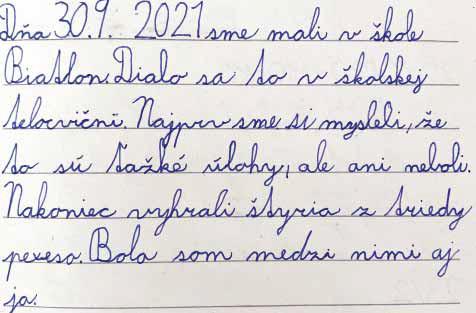 Dňa 30.9. 2021 sme mali v škole
Biatlon. Dialo sa to v školskej
telocvični. Najprv sme si mysleli, že
to sú ťažké úlohy, ale ani neboli.
Nakoniec vyhrali štyria z triedy
pexeso. Bola som medzi nimi aj
ja.